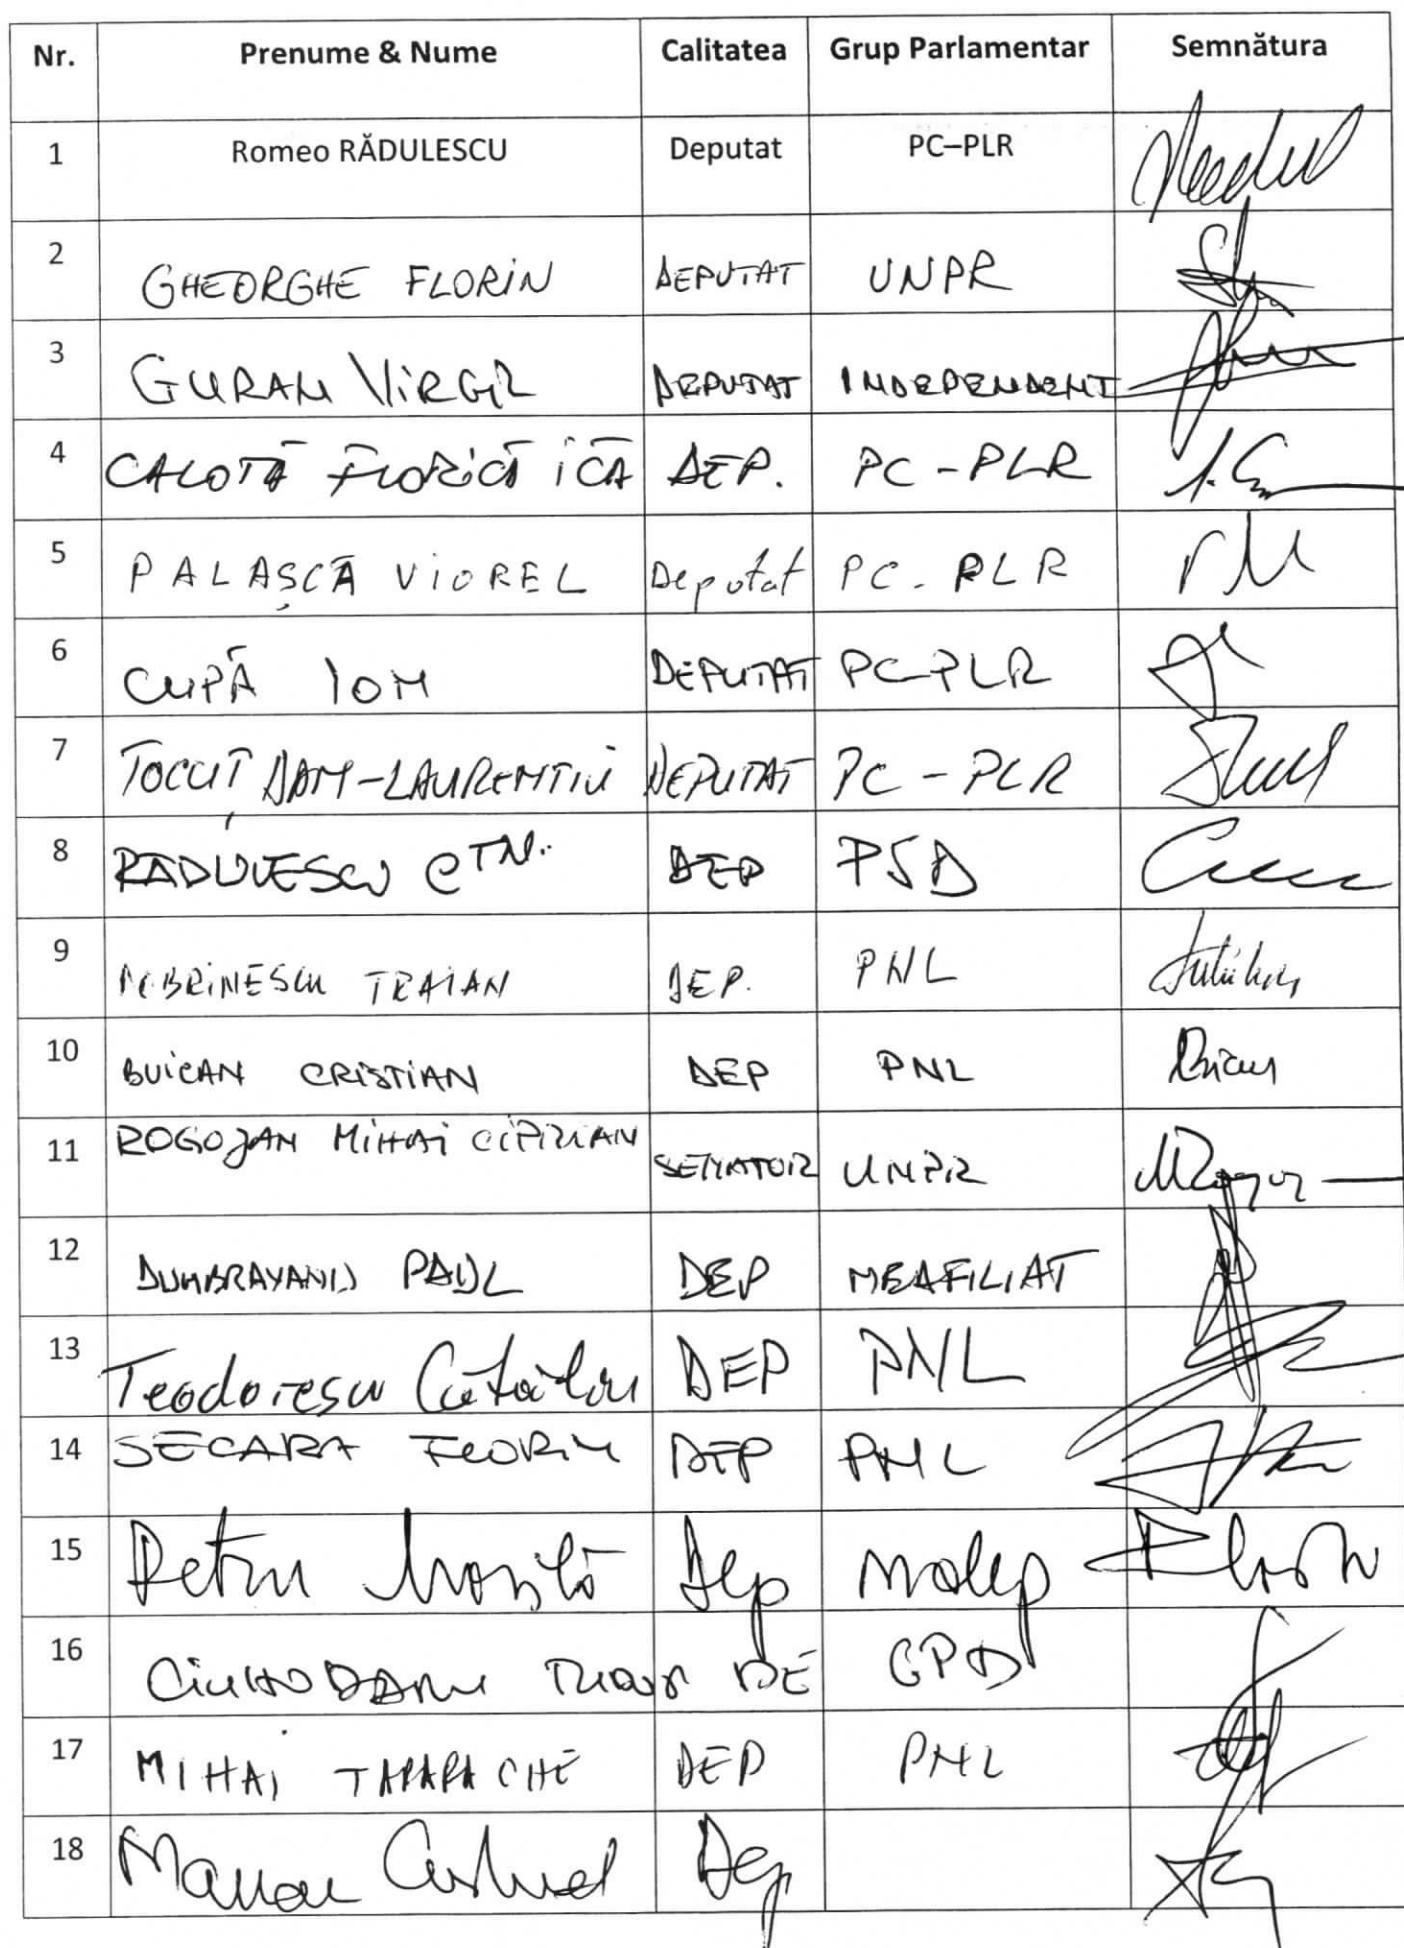 Nr. Prenume & Nume Calitatea Grup Parlamentar Semnătura
1 Romeo RĂDULESCU Deputat PC–PLR
2 GHEORGHE FLORIN DEPUTAT UNPR
3 GURAN VIRGIL DEPUTAT INDEPENDENT
4 CALOTĂ FLORICĂ ICĂ DEP. PC-PLR
5 PALAȘCĂ VIOREL Deputat PC-PLR
6 CUPĂ ION DEPUTAT PC-PLR
7 TOCUȚ DAN-LAURENȚIU DEPUTAT PC-PLR
8 RĂDULESCU CTN. DEP PSD
9 DOBRINESCU TRAIAN DEP. PNL
10 BUICAN CRISTIAN DEP PNL
11 ROGOJAN MIHAI CIPRIAN SENATOR UNPR
12 DUMBRAVANU PAUL DEP NEAFILIAT
13 Teodorescu Cătălin DEP PNL
14 SECARA FLORIN DEP PNL
15 Petru Dep
16 CIUHODARU TUDOR DE
17 MIHAI TARARACHE DEP PNL
18 Dep